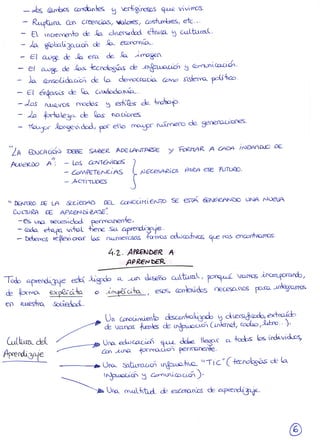 - Los cambios constantes y vertiginosos que vivimos.
- Ruptura con creencias, valores, costumbres, etc...
- El incremento de la diversidad étnica y cultural.
- La globalización de la economía.
- El auge de la era de la imagen
- El auge de las tecnologías de información y comunicación.
- La consolidación de la democracia como sistema político
- El énfasis de la ciudadanía.
- Los nuevos modos y estilos de trabajo.
- La fortaleza de las naciones
- Mayor longevidad, por ello mayor número de generaciones.
"LA EDUCACIÓN DEBE SABER ADELANTARSE Y FORMAR A CADA INDIVIDUO DE
ACUERDO A: - LOS CONTENIDOS
- COMPETENCIAS NECESARIOS PARA ESE FUTURO.
- ACTITUDES
"DENTRO DE LA SOCIEDAD DEL CONOCIMIENTO SE ESTÁ GENERANDO UNA NUEVA
CULTURA DE APRENDIZAJE"
- Es una necesidad permanente.
- Cada etapa vital tiene su aprendizaje.
- Debemos reflexionar las numerosas formas educativas que nos encontramos
4.2. APRENDER A
APRENDER
Todo aprendizaje está ligado a un diseño cultural, porque vamos incorporando,
de forma explícita o implícita, esos contenidos necesarios para integrarnos
en nuestra sociedad.
Cultura del
Aprendizaje
Un conocimiento descentralizado y diversificado, extraído
de varias fuentes de información (internet, radio, libro...).
Una educación que debe llegar a todos los individuos,
con una formación permanente.
Una saturación informativa "TIC" (tecnologías de la
información y comunicación).
Una multitud de escenarios de aprendizaje.
6